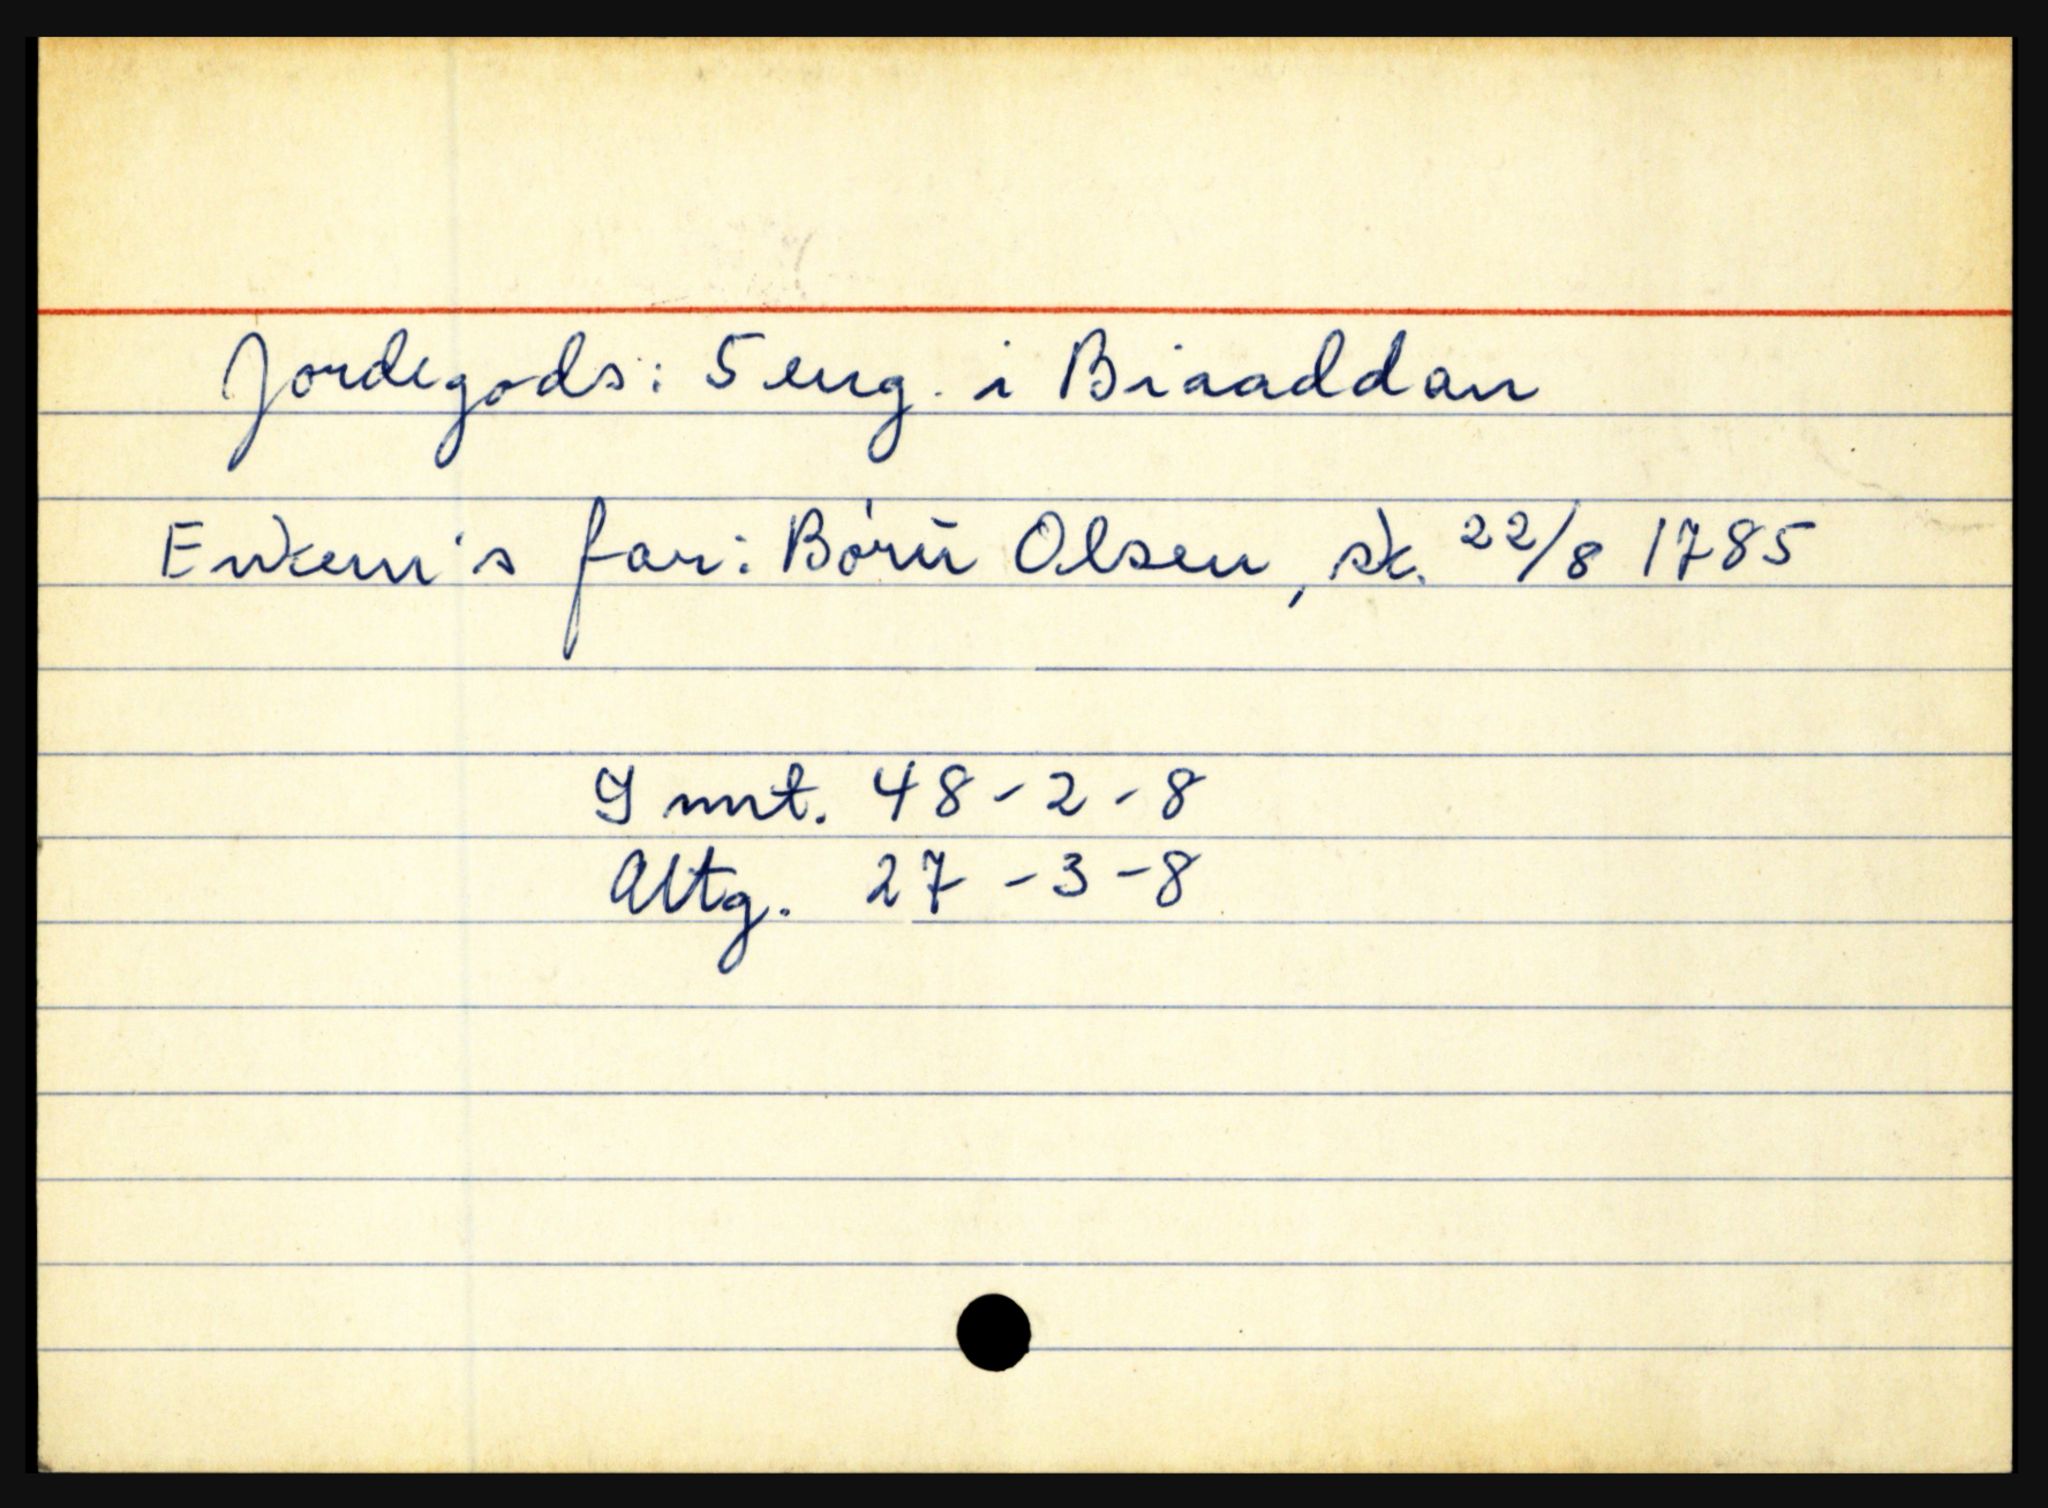 Jordegods: 5 eng. i Biaaddan
Enkem's far: Børú Olsen, sk. 22/8 1785
Innt. 48-2-8
Altg. 27-3-8